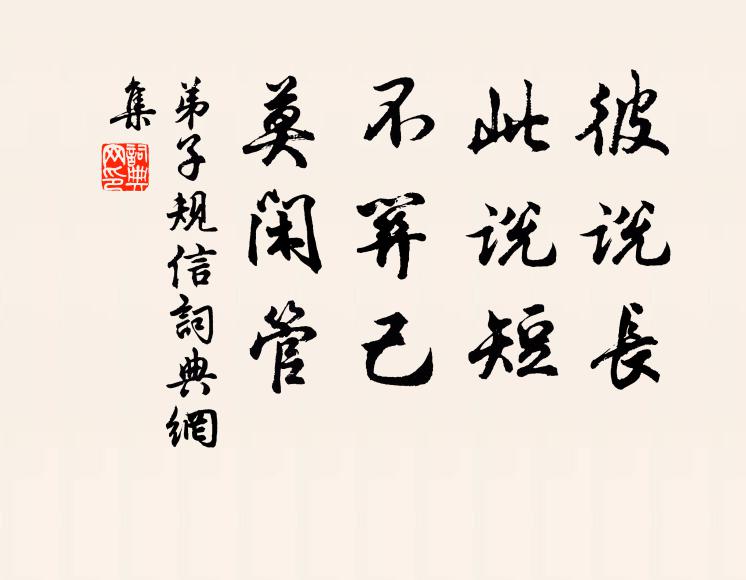 彼说長
此说短
不關己
莫闲管
弟子規信詞典網
集
詞典
网印